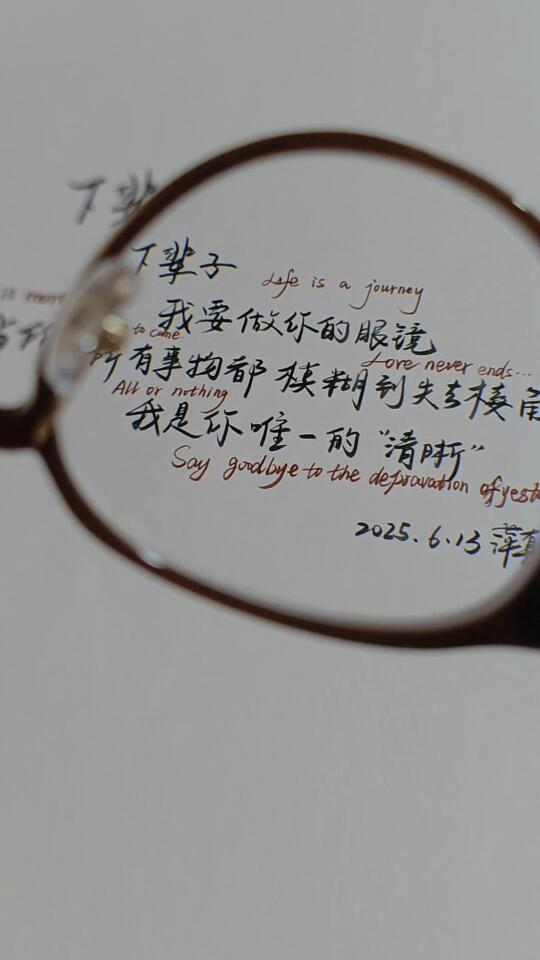 下辈子
Life is a journey
我要做你的眼镜
to come.
Love never ends...
所有事物都模糊到失去棱角
All or nothing
我是你唯一的“清晰”
Say goodbye to the depravation of
2025.6.13 萍